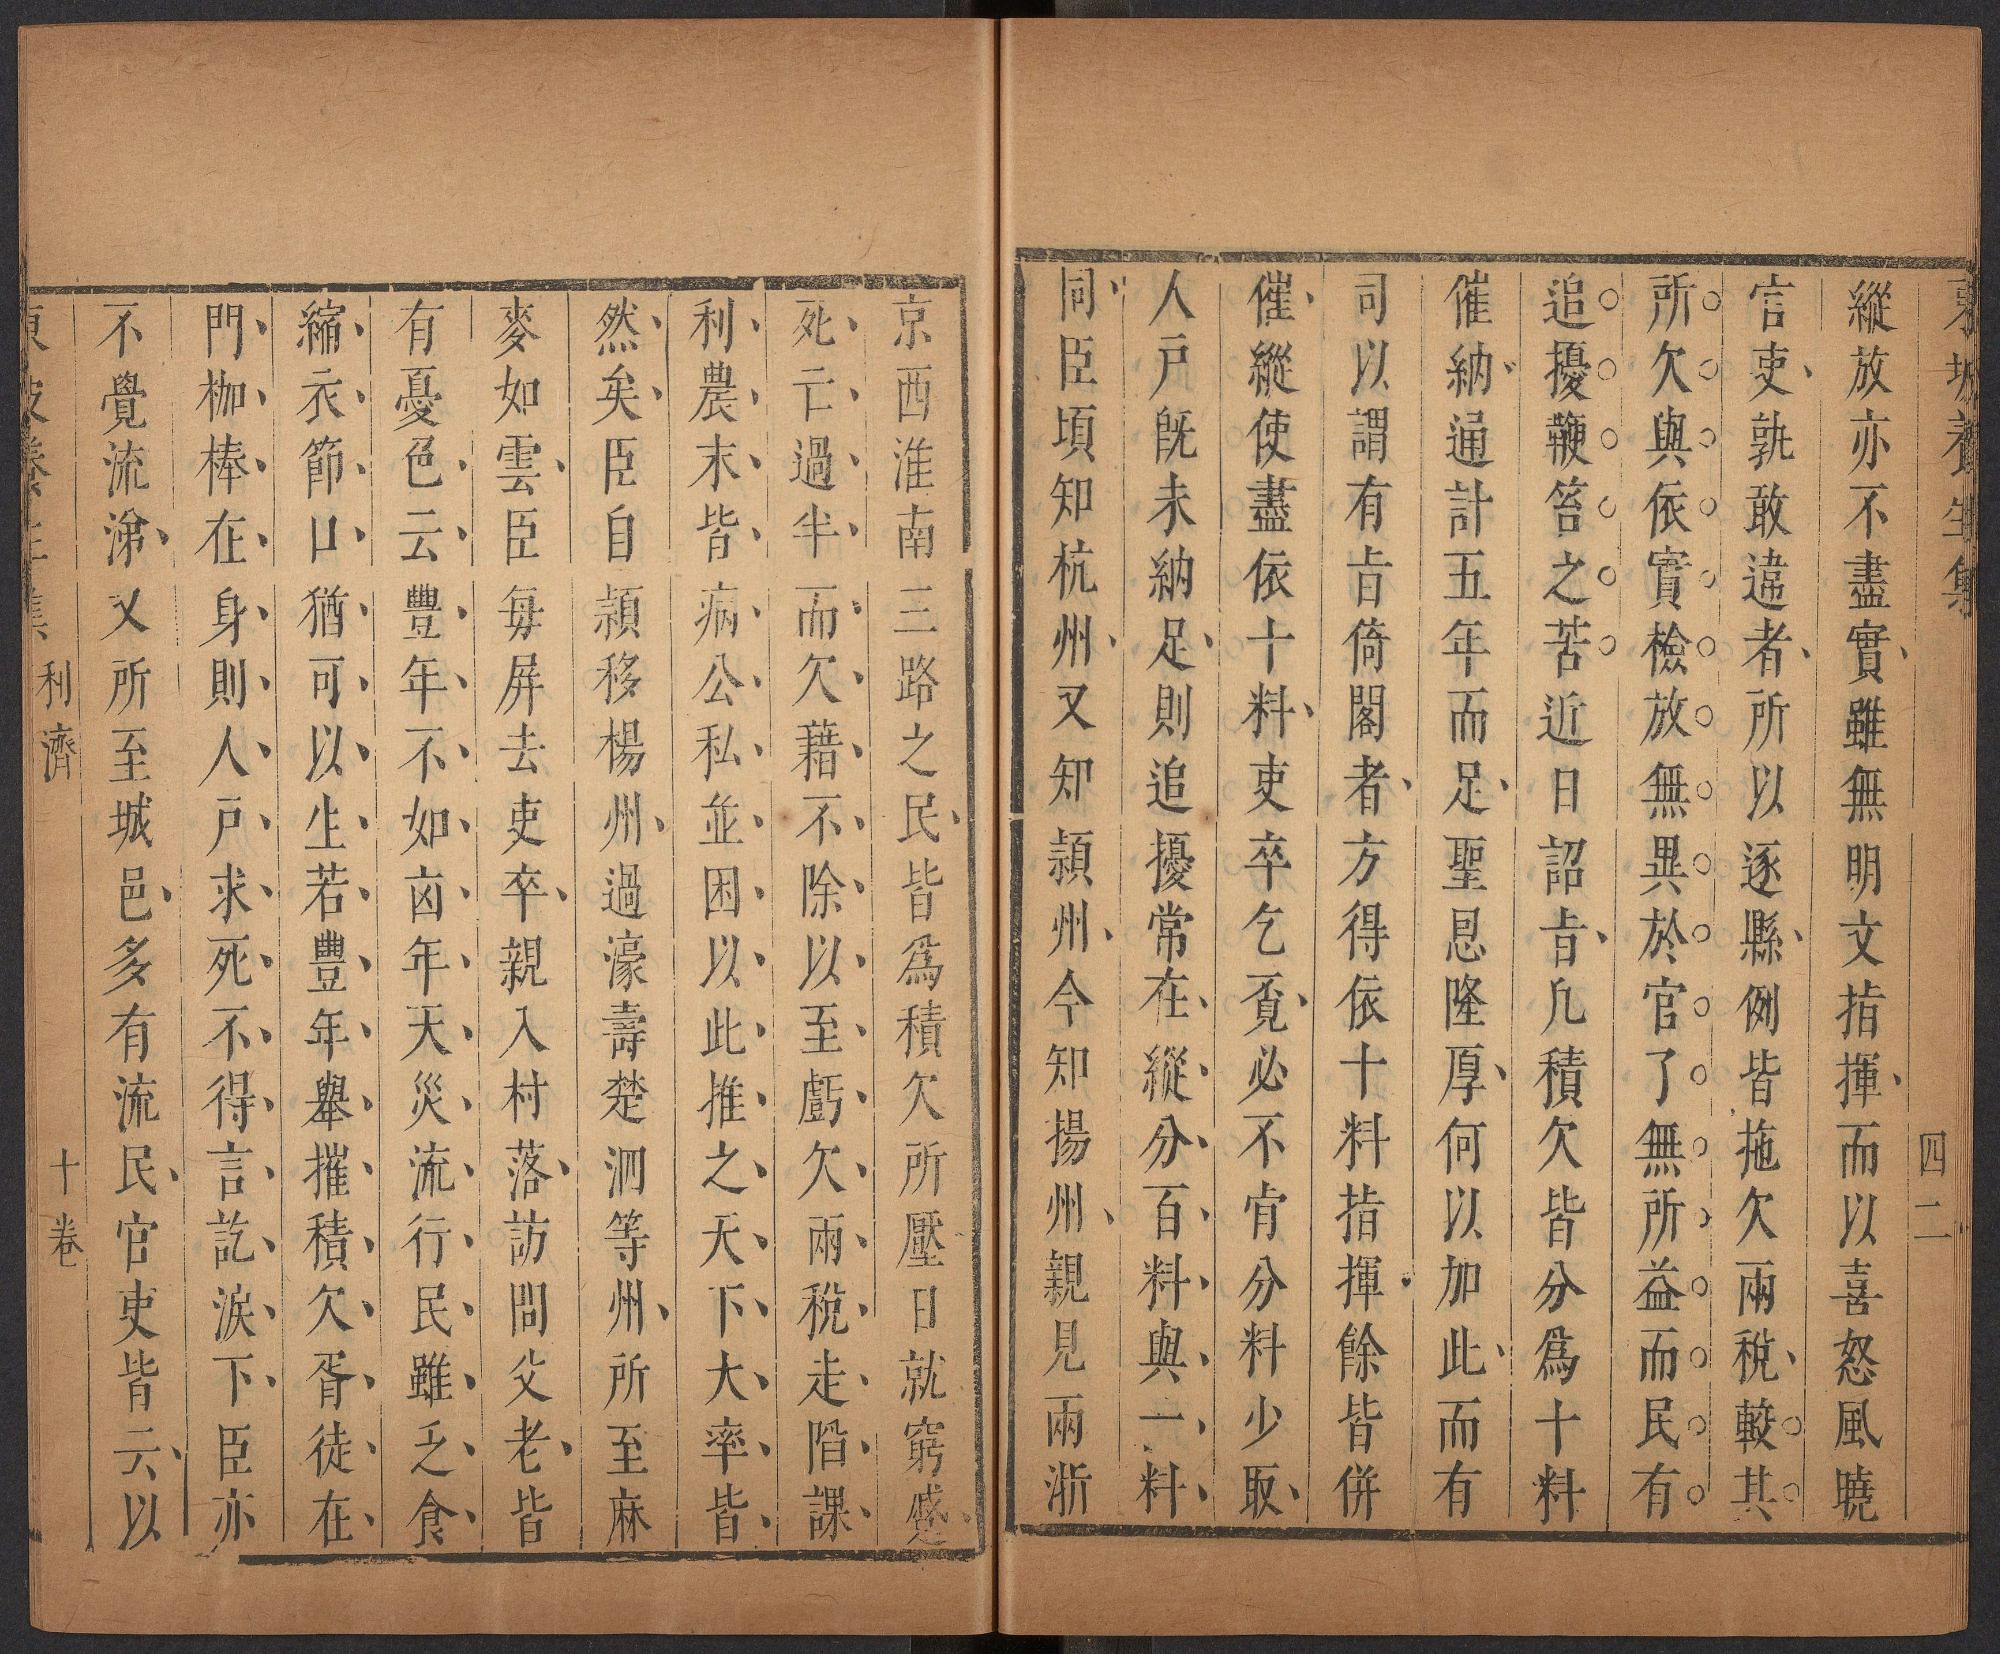 東坡養生集
四二
縱放亦不盡實雖無明文指揮而以喜怒風曉
官吏孰敢違者所以逐縣例皆拖欠兩稅較其
所欠與依實檢放無異於官了無所益而民有
追擾鞭笞之苦近日詔旨凡積欠皆分爲十料
催納通計五年而足聖恩隆厚何以加此而有
司以謂有旨倚閣者方得依十料指揮餘皆併
催縱使盡依十料吏卒乞覔必不肯分料少取
人戸旣未納足則追擾常在縱分百料與一料
同臣頃知杭州又知潁州今知揚州親見兩浙
京西淮南三路之民皆爲積欠所壓日就窮蹙
死亡過半而欠藉不除以至虧欠兩稅走陷課
利農末皆病公私並困以此推之天下大率皆
然矣臣自潁移楊州過濠壽楚泗等州所至麻
麥如雲臣每屏去吏卒親入村落訪問父老皆
有憂色云豐年不如凶年天災流行民雖乏食
縮衣節口猶可以生若豐年舉摧積欠胥徒在
門枷棒在身則人戸求死不得言訖淚下臣亦
不覺流涕又所至城邑多有流民官吏皆云以
東坡養生集 利濟 十卷